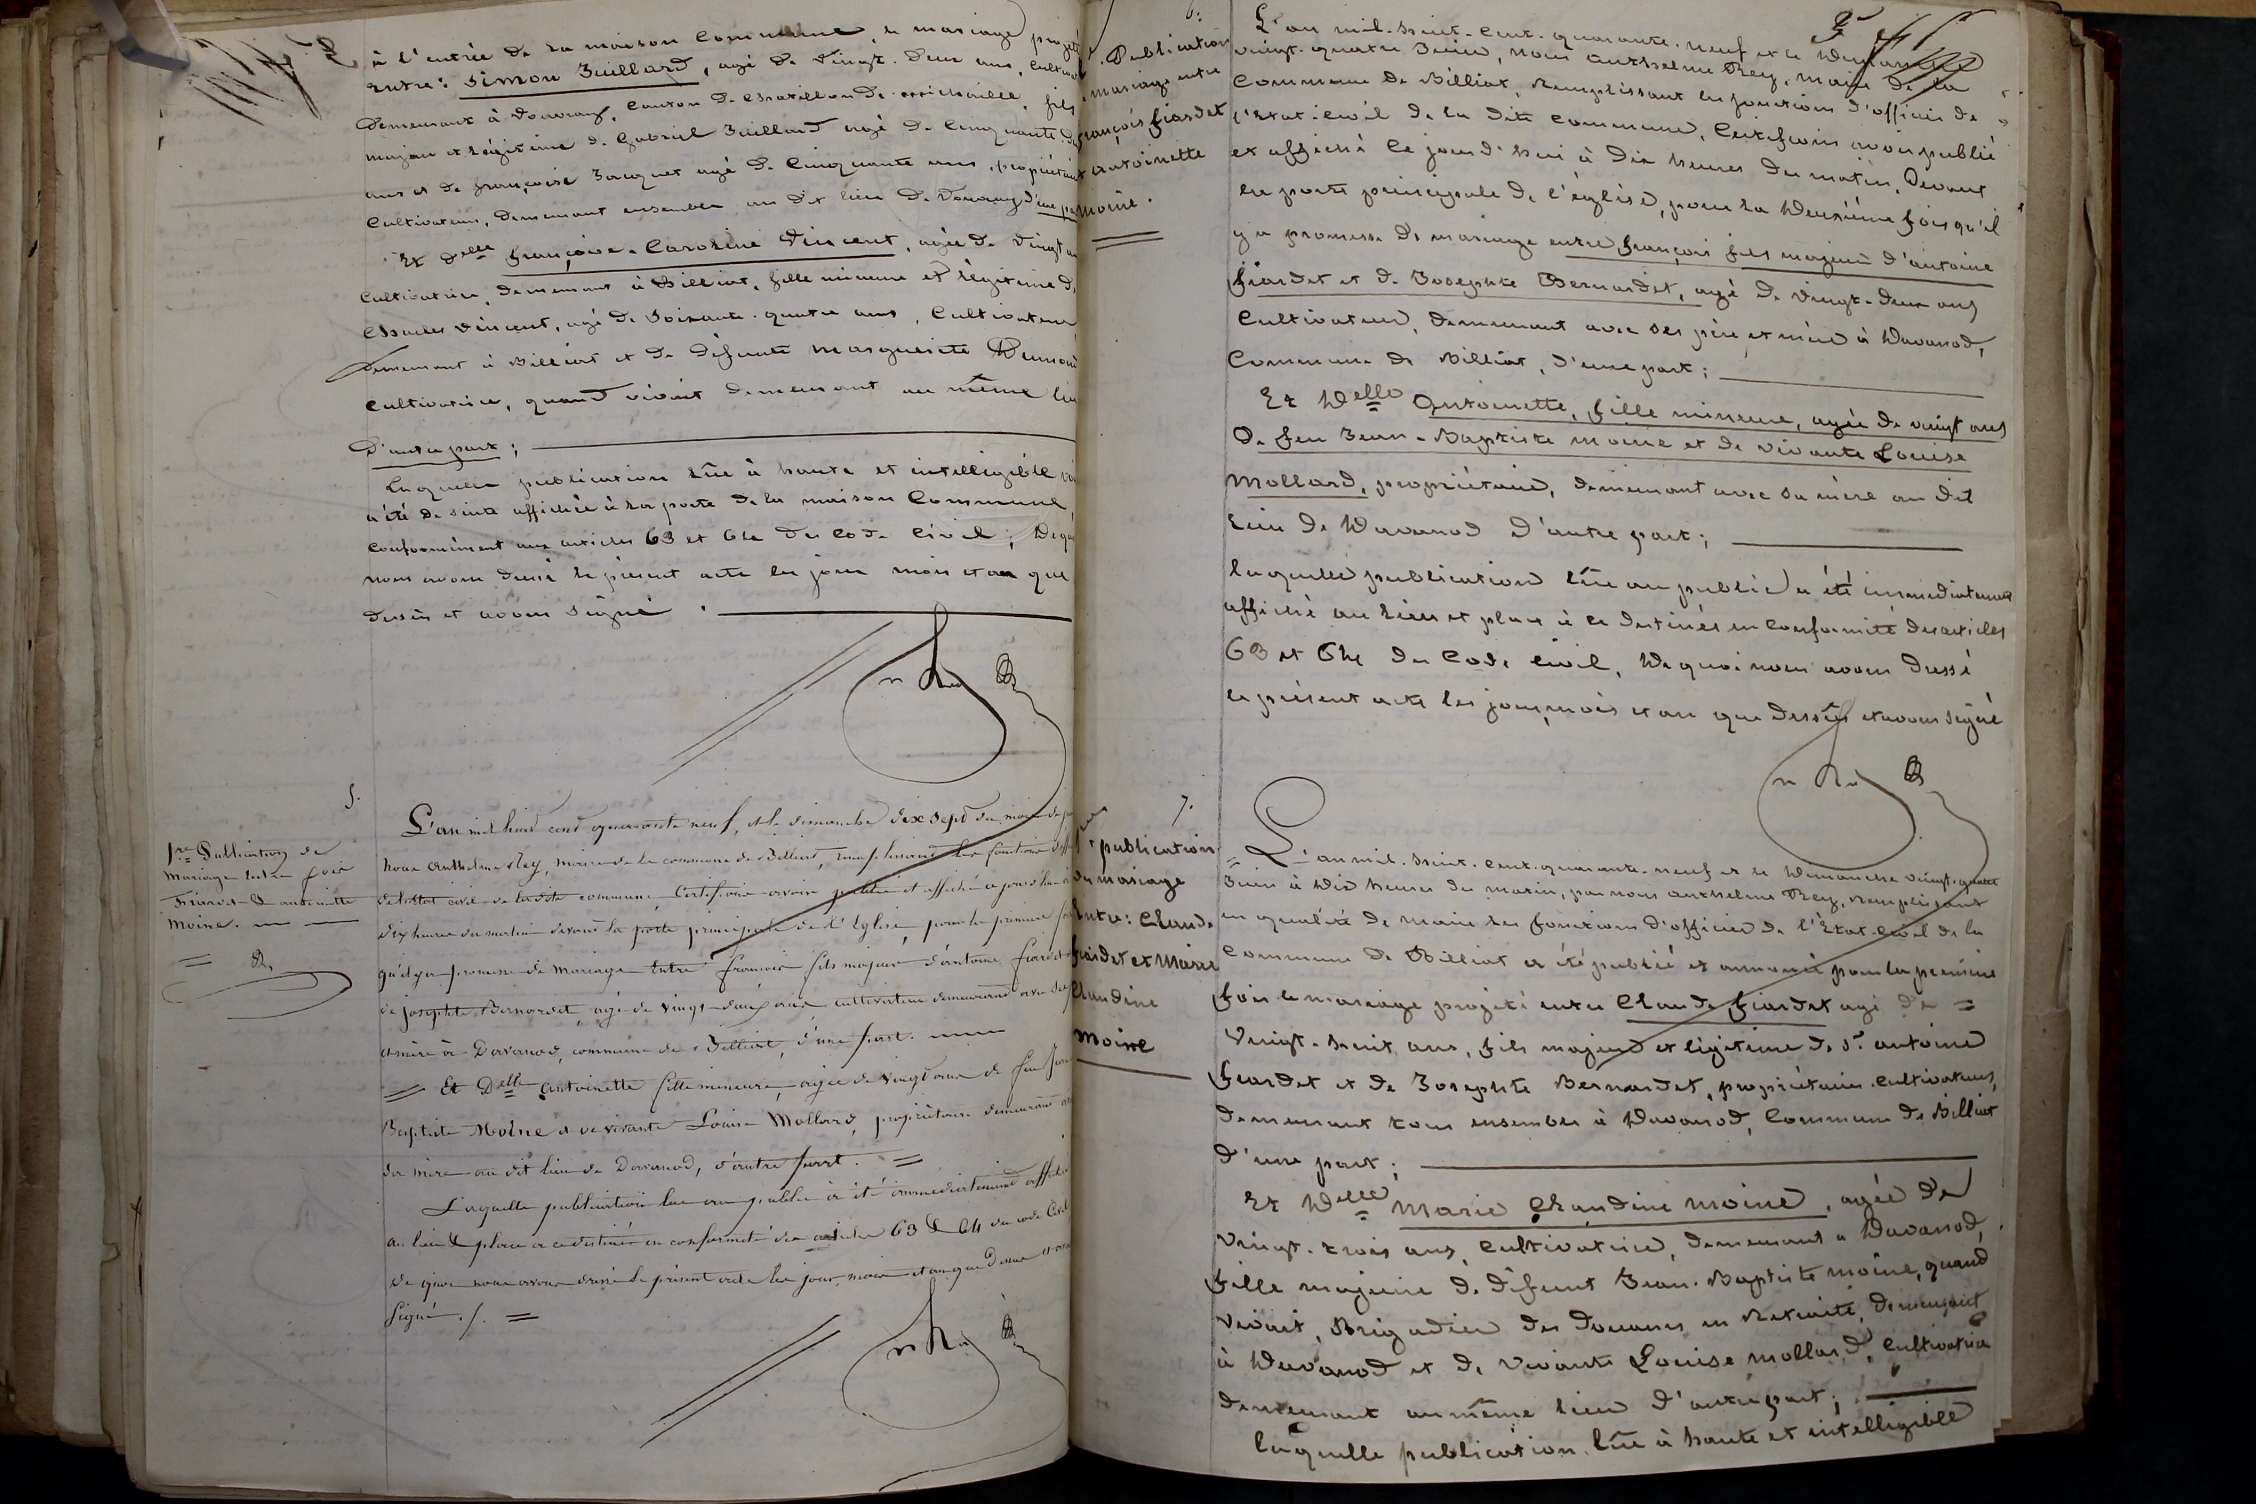 2
à l'entrée de la maison Commune, le mariage projeté
entre: Simon Juillard, agé de vingt-deux ans, Cultivat
demeurant à Vouvray, Canton de Chatillon de Michaille, fils
majeur et légitime de Gabriel Juillard agé de Cinquante
ans et de françoise Jacquet agé de Cinquante ans, propriétaires
Cultivateurs, demeurant ensemble au dit lieu de Vouvray d'une pa
Et Delle françoise-Caroline Vincent, agée de vingt an
Cultivatrice, demeurant à Billiat, fille mineure et légitime de
Charles Vincent, agé de Soixante-quatre ans, Cultivateur
demeurant à Billiat et de défunte Marguerite
Cultivatrice, quand vivait demeurant au même lieu
D'autre part;
laquelle publication lûe à haute et intelligible voi
a été de suite affichée à la porte de la maison Commune,
Conformément aux articles 63 et 64 du Code Civil; De quoi
nous avons dressé le présent acte les jour mois et an que
dessus et avons signé.
5.
1re Publication de
Mariage entre fois
Fiardet & antoinette
Moine.
L'an mil huit cent quarante neuf, et le dimanche dix sept du mois de ju
nous Anthelme Rey, maire de la commune de Billiat, remplissant les fonctions d'off
de l'Etat civil de la dite commune Certifions avoir publié et affiché ce jourd'hui à
dix heures du matin devant la porte principale de l'Eglise, pour la première foi
qu'il y a promesse de Mariage Entre françois fils majeur d'antoine fiardet
de josephte Bernardet, agé de vingt-deux ans, cultivateur demeurant avec ses
et mère à Davanod, commune de Billiat, d'une part.
Et Delle Antoinette fille mineure, agée de vingt ans de feu Jean
Baptiste Moine et de vivante Louise Mollard, propriétaire demeurant av
sa mère au dit lieu de Davanod, d'autre part.
Laquelle publication lue au public a été immédiatement affiché
au lieu & place à ce destinés en conformité des articles 63 & 64 du code Civil
de quoi nous avons dressé le présent acte les jour, mois et an que dessus et avons
Signé ./.
6.
2
. Publication
mariage entre
françois fiardet
antoinette
Moine.
L'an mil-huit-Cent-quarante-neuf et le Dimanche
vingt-quatre Juin, nous Anthelme Rey, maire de la
Commune de Billiat, Remplissant les fonctions d'officier de
l'Etat-Civil de la dite Commune, Certifions avoir publié
et affiché ce jourd'hui à dix heures du matin, Devant
la porte principale de l'église, pour la Deuxième fois qu'il
y a promesse de mariage entre françois fils majeur d'antoine
fiardet et de Josephte Bernardet, agé de vingt-deux ans
Cultivateur, demeurant avec ses père et mère à Davanod,
Commune de Billiat, d'une part;
Et Delle Antoinette, fille mineure, agée de vingt ans
De feu Jean-Baptiste moine et de vivante Louise
Mollard, propriétaire, demeurant avec sa mère au dit
lieu de Davanod D'autre part;
laquelle publication lûe au public a été immédiatement
affiché au lieu et place à ce destinés en Conformité des articles
63 et 64 du Code Civil, De quoi nous avons Dressé
le présent acte les jour, mois et an que dessus et avons signé
7.
publication
du mariage
Entre: Claude
fiardet et Marie
Claudine
Moine
L'an mil-huit-Cent-quarante-neuf et le Dimanche vingt-quatre
Juin à Dix heures du matin, par nous Anthelme Rey, remplissant
en qualité de maire les fonctions d'officier de l'Etat-Civil de la
Commune de Billiat a été publié et annoncé pour la première
fois le mariage projeté entre Claude fiardet agé de
Vingt-huit ans, fils majeur et légitime de Sr. antoine
fiardet et de Josephte Bernardet, propriétaires-Cultivateurs,
demeurant tous ensembles à Davanod, Commune de Billiat
d'une part;
Et Delle Marie Claudine moine, agée de
vingt-trois ans, Cultivatrice, demeurant à Davanod,
fille majeure de défunt Jean-Baptiste moine, quand
vivait, Brigadier des Douanes en Retraite, demeurant
à Davanod et de vivante Louise mollard, Cultivatrice
demeurant au même lieu d'autre part;
laquelle publication lûe à haute et intelligible